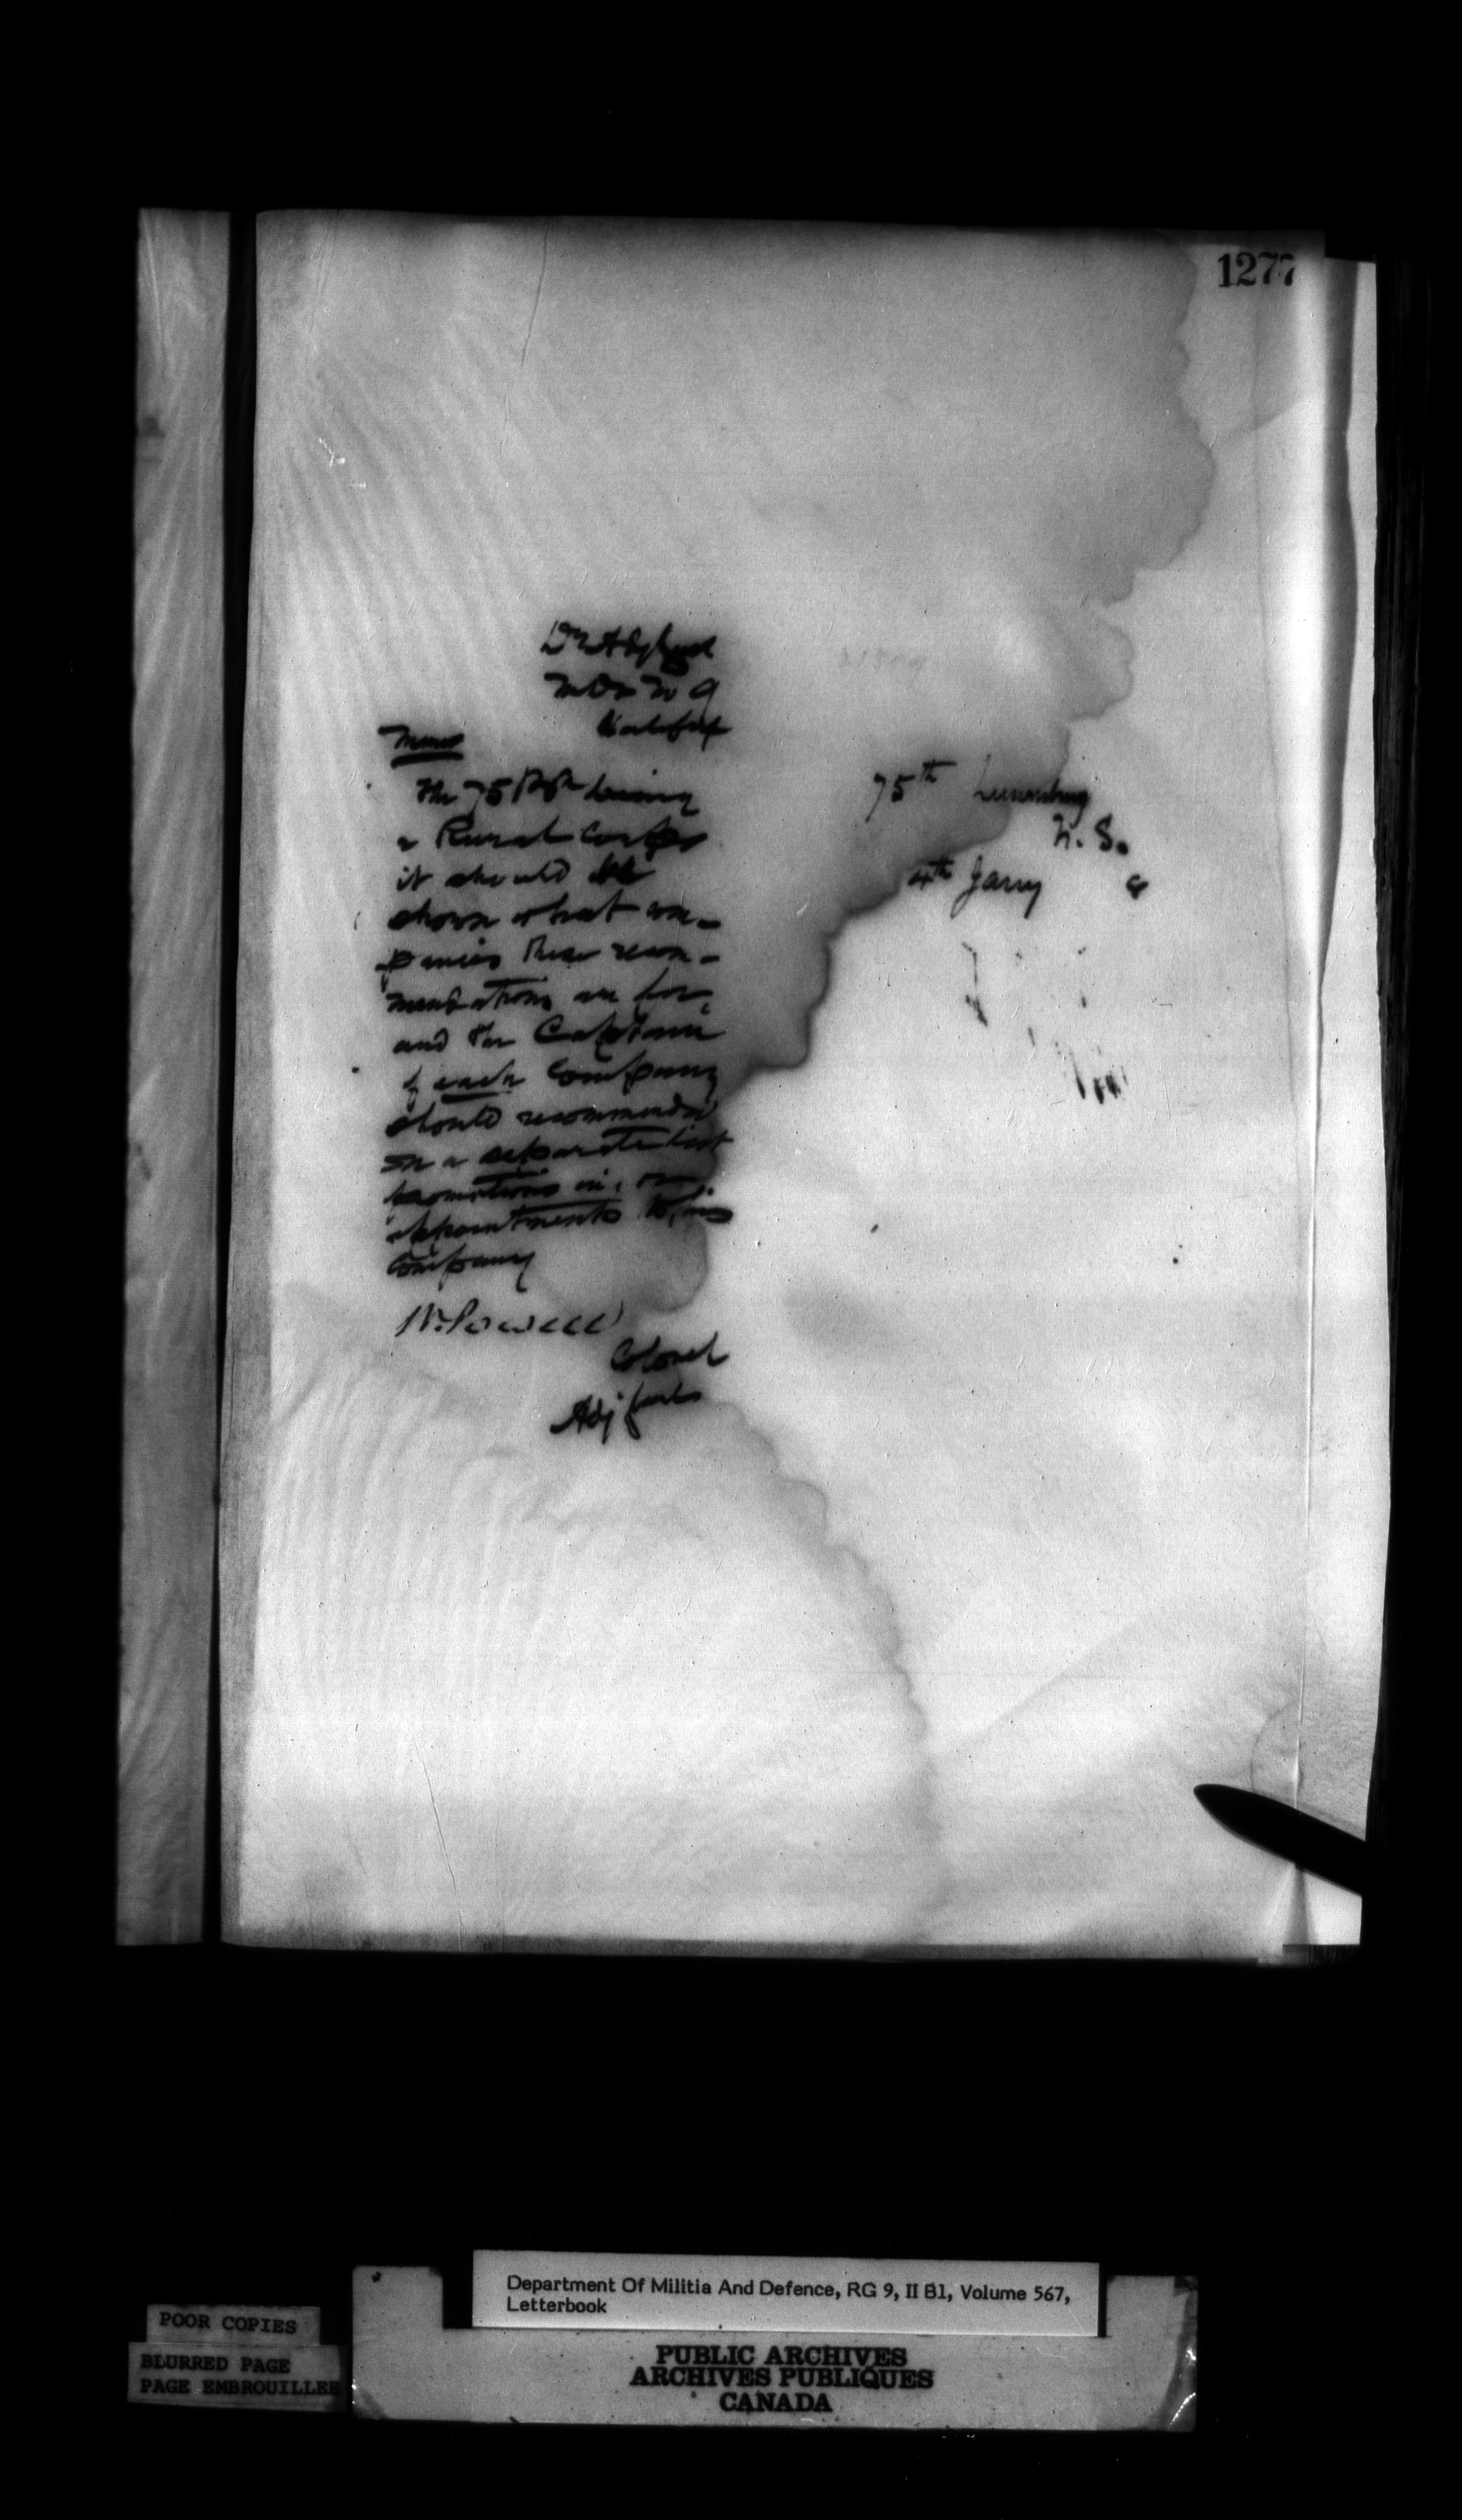 1277
M Dis No 9
Halifax
Memo
The 75 Batn being
a Rural Corps
it should be
shown what com-
panies these recom-
mendations are for,
and the Captain
of each Company
should recommend
on a separate list
promotions in, or
appointments to, his
Company
W. Powell
Colonel
Adj Genl
75th Lunenburg
N. S.
4th Jany
Department Of Militia And Defence, RG 9, II B1, Volume 567,
Letterbook
POOR COPIES
BLURRED PAGE
PAGE EMBROUILLEE
PUBLIC ARCHIVES
ARCHIVES PUBLIQUES
CANADA